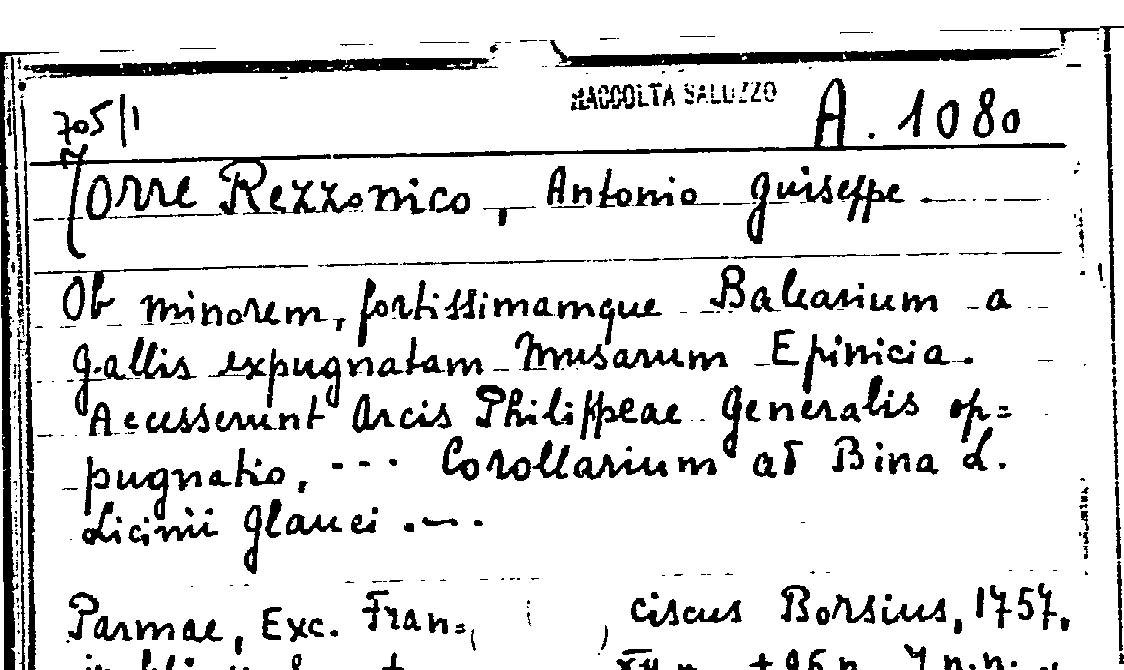 RACCOLTA SALUZZO
705/1
A. 1080
Torre Rezzonico, Antonio Guiseppe.
Ob minorem, fortissimamque Balearium a
Gallis expugnatam Musarum Epinicia.
Accesserunt Arcis Philippeae Generalis op=
pugnatio, --- Corollarium ad Bina L.
Licinii Glauci .--.
Parmae, Exc. Fran=ciscus Borsius, 1757.